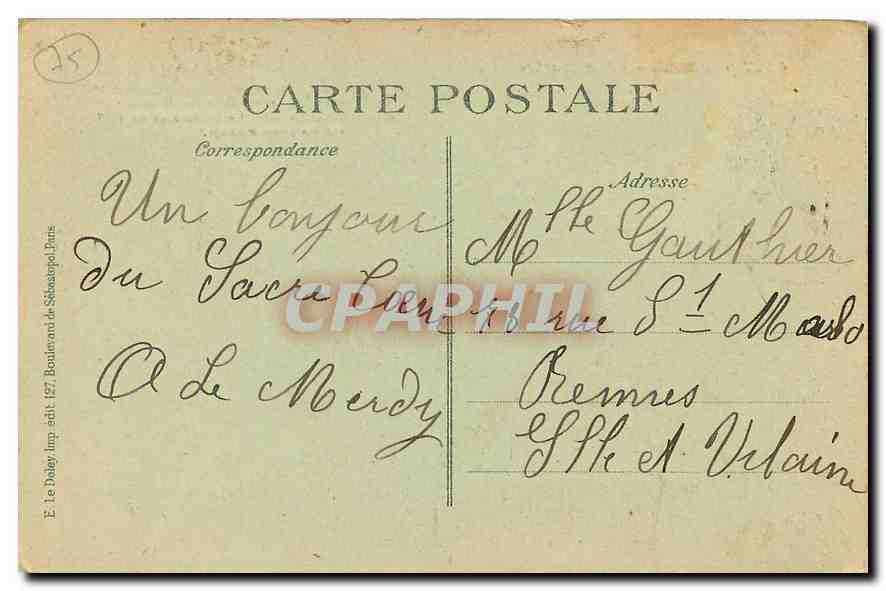 75
CARTE POSTALE
Correspondance
Un bonjour
du Sacre Coeur
A Le Merdy
Adresse
Mlle Gauthier
78 rue St Malo
Rennes
Ille et Vilaine
E. Le Deley, Imp. édit. 127, Boulevard de Sébastopol, Paris
CPAPHIL